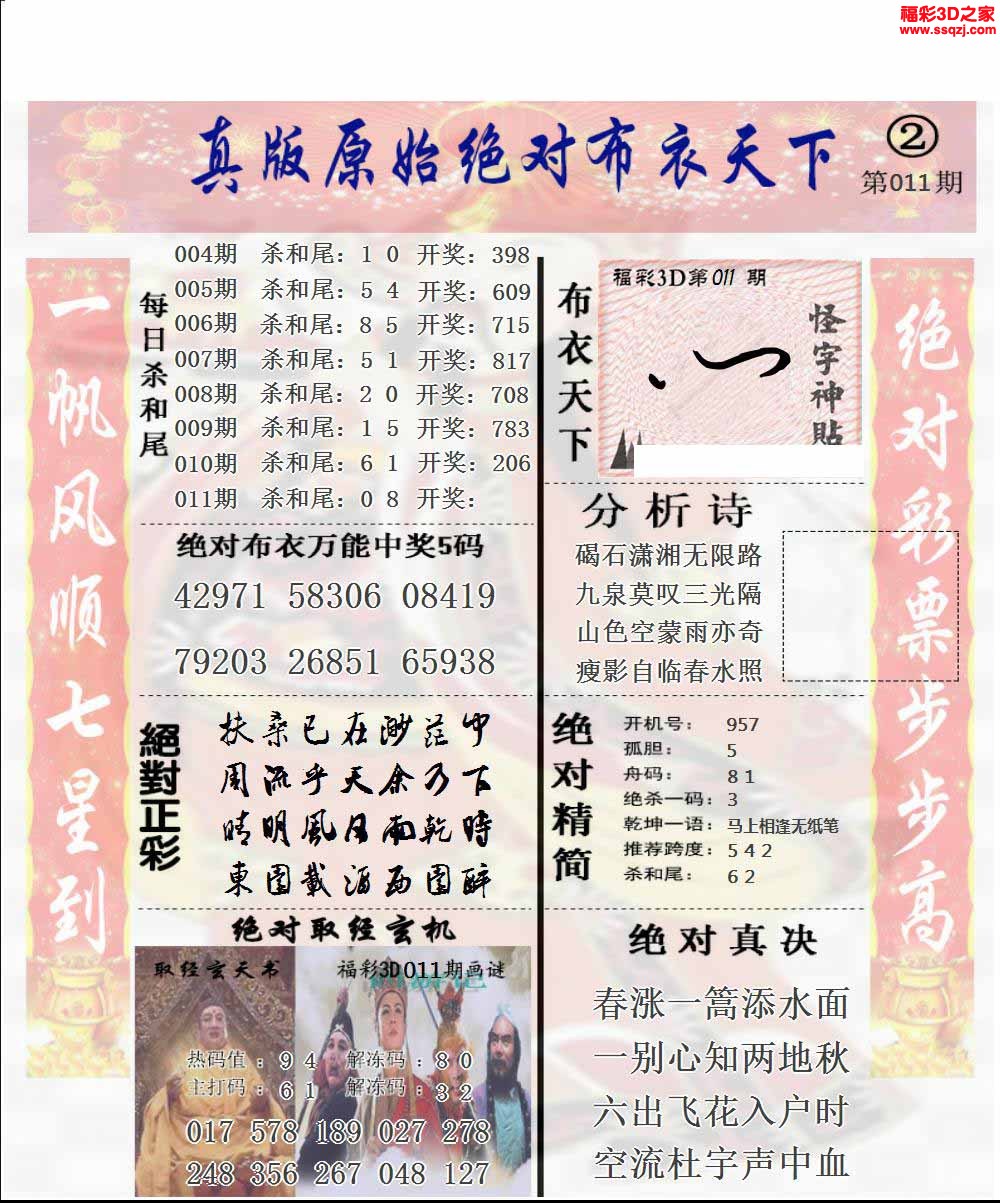 福彩3D之家
www.ssqzj.com
真版原始绝对布衣天下
②
第011期
一帆风顺七星到
每日杀和尾
004期 杀和尾：1 0 开奖：398
005期 杀和尾：5 4 开奖：609
006期 杀和尾：8 5 开奖：715
007期 杀和尾：5 1 开奖：817
008期 杀和尾：2 0 开奖：708
009期 杀和尾：1 5 开奖：783
010期 杀和尾：6 1 开奖：206
011期 杀和尾：0 8 开奖：
绝对布衣万能中奖5码
42971 58306 08419
79203 26851 65938
絕對正彩
扶桑已在渺茫中
周流乎天余乃下
晴明風日雨乾時
東園載酒西園醉
绝对取经玄机
取经玄天书
福彩3D011期画谜
热码值：9 4 解冻码：8 0
主打码：6 1 解冻码：3 2
017 578 189 027 278
248 356 267 048 127
布衣天下
福彩3D第011期
怪字神贴
分析诗
碣石潇湘无限路
九泉莫叹三光隔
山色空蒙雨亦奇
瘦影自临春水照
绝对精简
开机号： 957
孤胆： 5
舟码： 8 1
绝杀一码：3
乾坤一语：马上相逢无纸笔
推荐跨度：5 4 2
杀和尾： 6 2
绝对真决
春涨一篙添水面
一别心知两地秋
六出飞花入户时
空流杜宇声中血
绝对彩票步步高